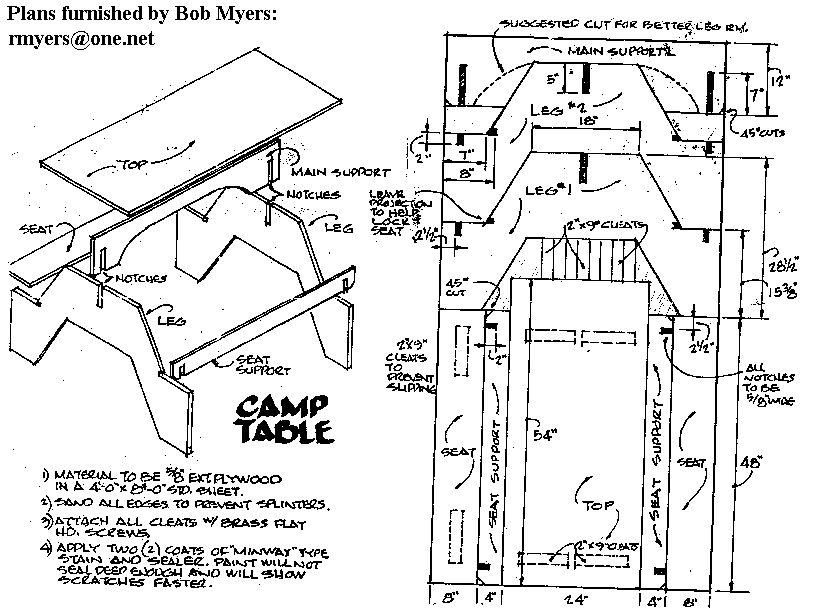 Plans furnished by Bob Myers:
rmyers@one.net
TOP
MAIN SUPPORT
NOTCHES
LEG
SEAT
NOTCHES
LEG
SEAT
SUPPORT
CAMP
TABLE
1) MATERIAL TO BE 5/8" EXT. PLYWOOD
IN A 4'-0" X 8'-0" STD. SHEET.
2) SAND ALL EDGES TO PREVENT SPLINTERS.
3) ATTACH ALL CLEATS W/ BRASS FLAT
HD. SCREWS
4) APPLY TWO (2) COATS OF "MINWAX" TYPE
STAIN AND SEALER. PAINT WILL NOT
SEAL DEEP ENOUGH AND WILL SHOW
SCRATCHES FASTER.
SUGGESTED CUT FOR BETTER LEG RM.
MAIN SUPPORT
5"
12"
7"
LEG #2
18"
45° CUTS
2"
7"
8"
LEG #1
LEAVE
PROJECTION
TO HELP
LOCK
SEAT
2 1/2"
2"x9" CLEATS
28 1/2"
15 3/8"
45°
CUT
2"X9"
CLEATS
TO
PREVENT
SLIPPING
2"
2 1/2"
ALL
NOTCHES
TO BE
5/8" WIDE
54"
48"
SEAT
SEAT SUPPORT
TOP
SEAT SUPPORT
SEAT
2"x9" CLEAT
8"
4"
24"
4"
8"